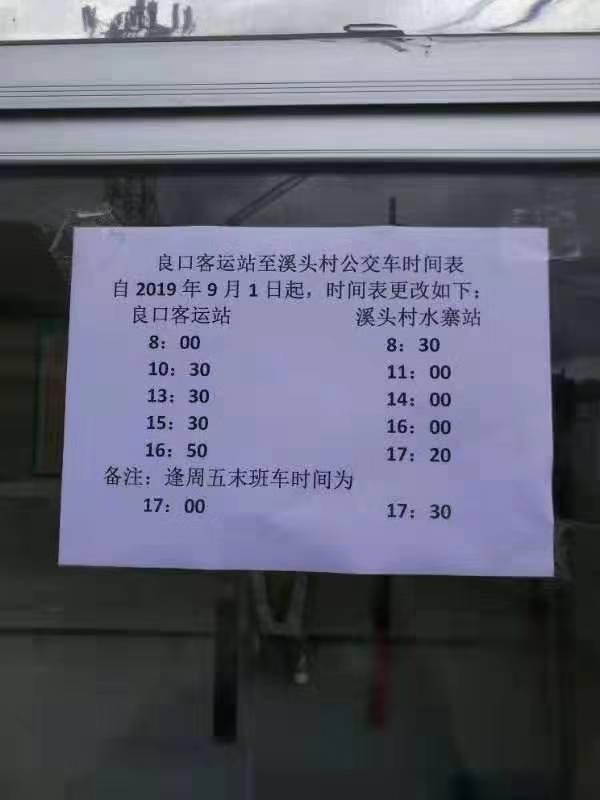 良口客运站至溪头村公交车时间表
自 2019 年 9 月 1 日起，时间表更改如下：
良口客运站 溪头村水寨站
8：00 8：30
10：30 11：00
13：30 14：00
15：30 16：00
16：50 17：20
备注：逢周五末班车时间为
17：00 17：30